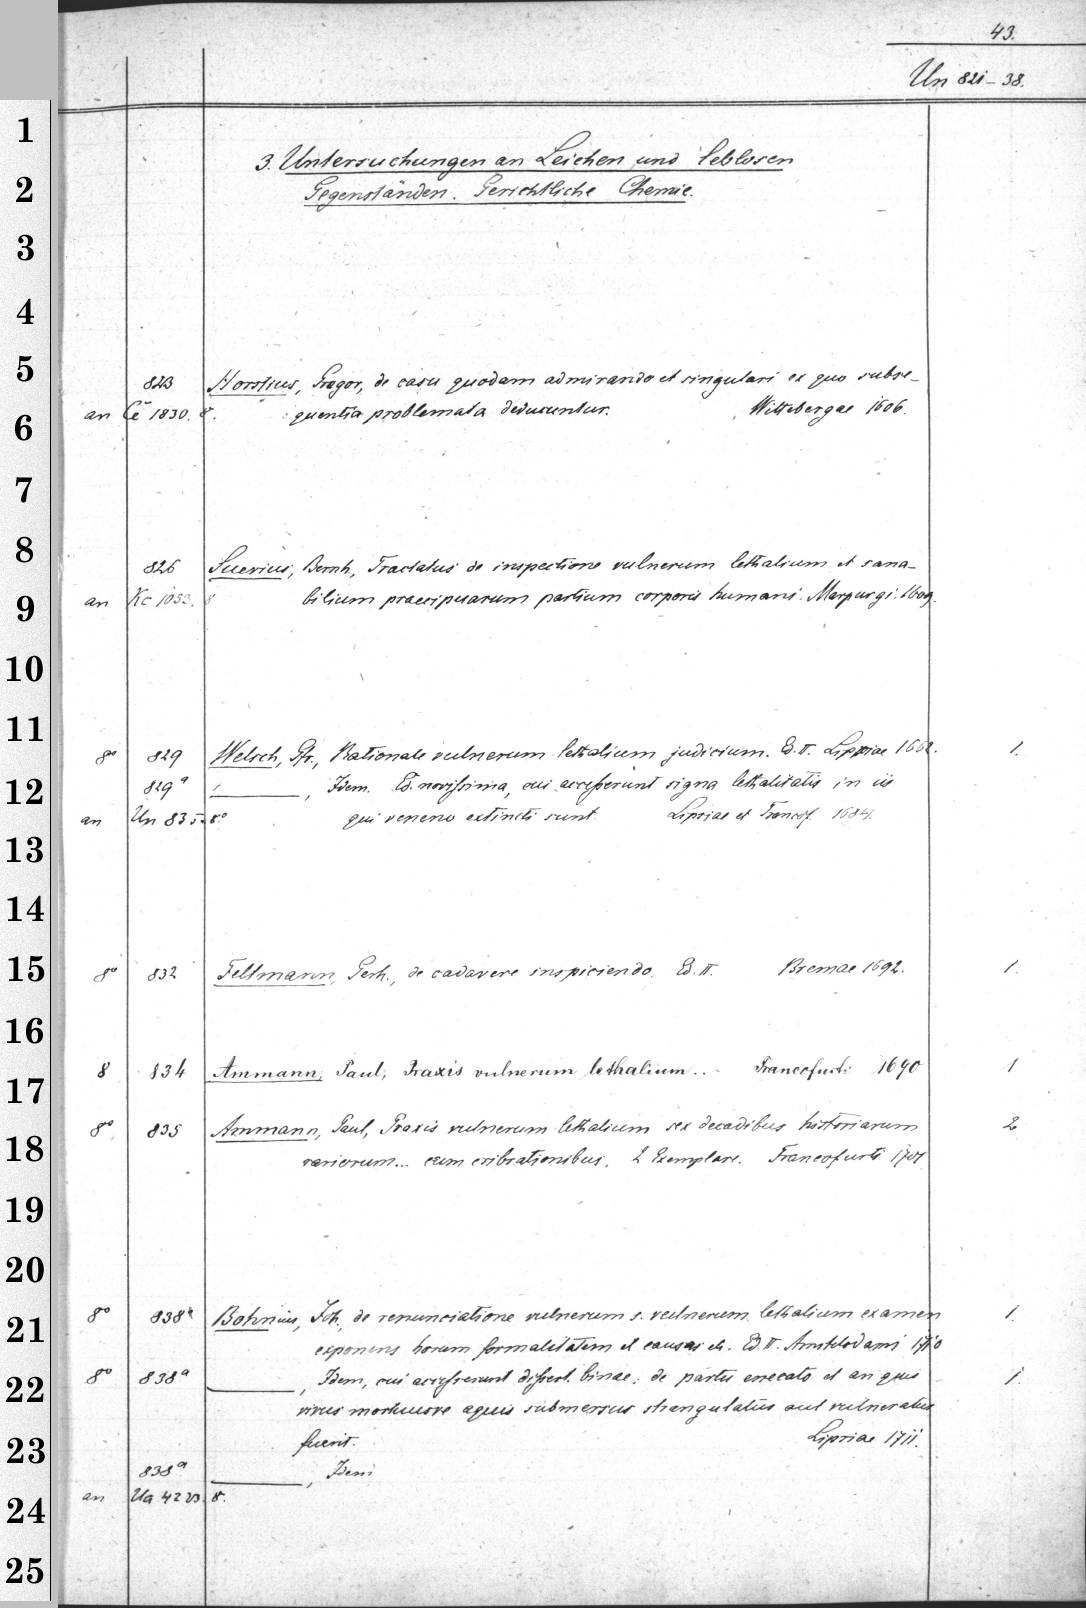 43.
Un 821-38.
1
3. Untersuchungen an Leichen und leblosen
2
Gegenständen. Gerichtliche Chemie.
3
4
5
823 Horstius, Gregor, de casu quodam admirando et singulari ex quo subse-
6
an Ce 1830. 8°. quentia problemata deducuntur. Wittebergae 1606.
7
8
826 Suevius, Bernh., Tractatus de inspectione vulnerum lethalium et sana-
9
an Kc 1053. 8 bilium praecipuarum partium corporis humani. Marpurgi. 1609.
10
11
8° 829 Welsch, Gfr., Rationale vulnerum lethalium judicium. Ed. II. Lipsiae 1662. 1.
12
829a ———, Idem. Ed. novissima, cui accesserunt signa lethalitatis in iis
an Un 835. 8° qui veneno extincti sunt. Lipsiae et Francof. 1684.
13
14
15
8° 832 Feltmann, Gerh., de cadavere inspiciendo. Ed. II. Bremae 1692. 1.
16
8 834 Ammann, Paul, Praxis vulnerum lethalium... Francofurti 1690 1
17
8° 835 Ammann, Paul, Praxis vulnerum lethalium sex decadibus historiarum 2
18
rariorum... cum cribrationibus. 2 Exemplare. Francofurti 1701
19
20
8° 838 Bohnius, Joh., de renunciatione vulnerum s. vulnerum lethalium examen 1.
21
exponens horum formalitatem et causas etc. Ed. II. Amstelodami 1710
22
8° 838a ———, Idem, cui accesserunt dissert. binae; de partu enecato et an quis 1.
vivus mortuusve aquis submersus strangulatus aut vulneratus
23
fuerit. Lipsiae 1711.
838a ———, Idem
24
an Ua 4223. 8°.
25